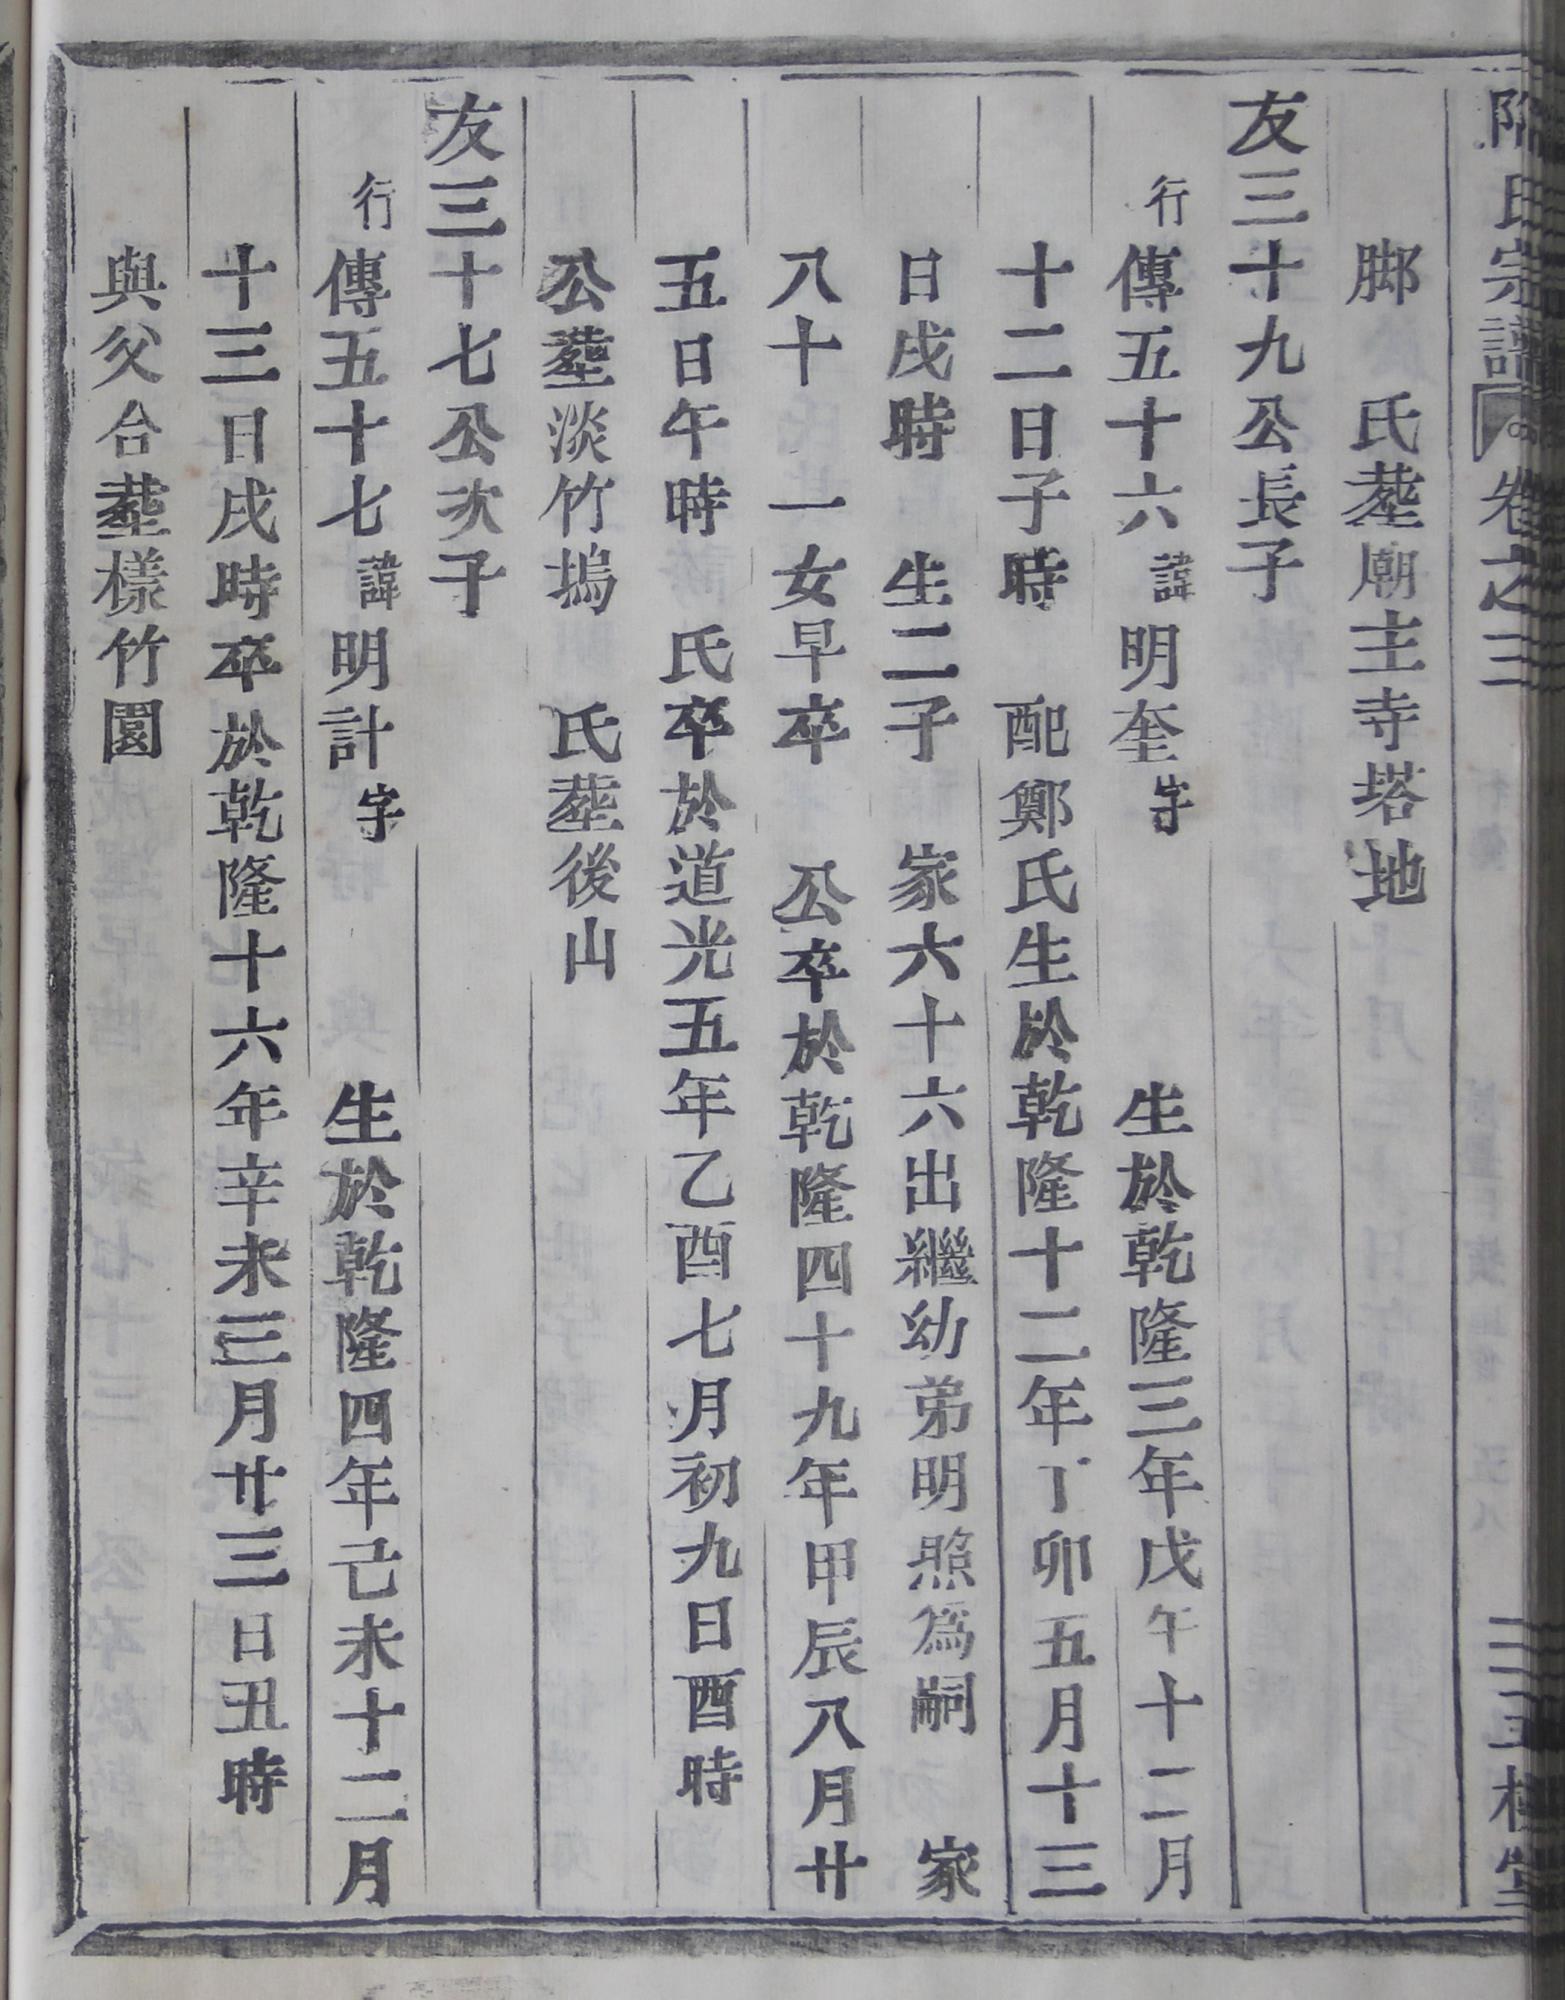 氏宗譜 卷之三 三五
脚 氏塟廟主寺塔地
友三十九公長子
行傳五十六諱明奎字 生於乾隆三年戊午十二月
十二日子時 配鄭氏生於乾隆十二年丁卯五月十三
日戌時 生二子 家六十六出繼幼弟明照為嗣 家
八十 一女早卒 公卒於乾隆四十九年甲辰八月廿
五日午時 氏卒於道光五年乙酉七月初九日酉時
公塟淡竹塢 氏塟後山
友三十七公次子
行傳五十七諱明計字 生於乾隆四年己未十二月
十三日戌時卒於乾隆十六年辛未三月廿三日丑時
與父合塟樣竹園